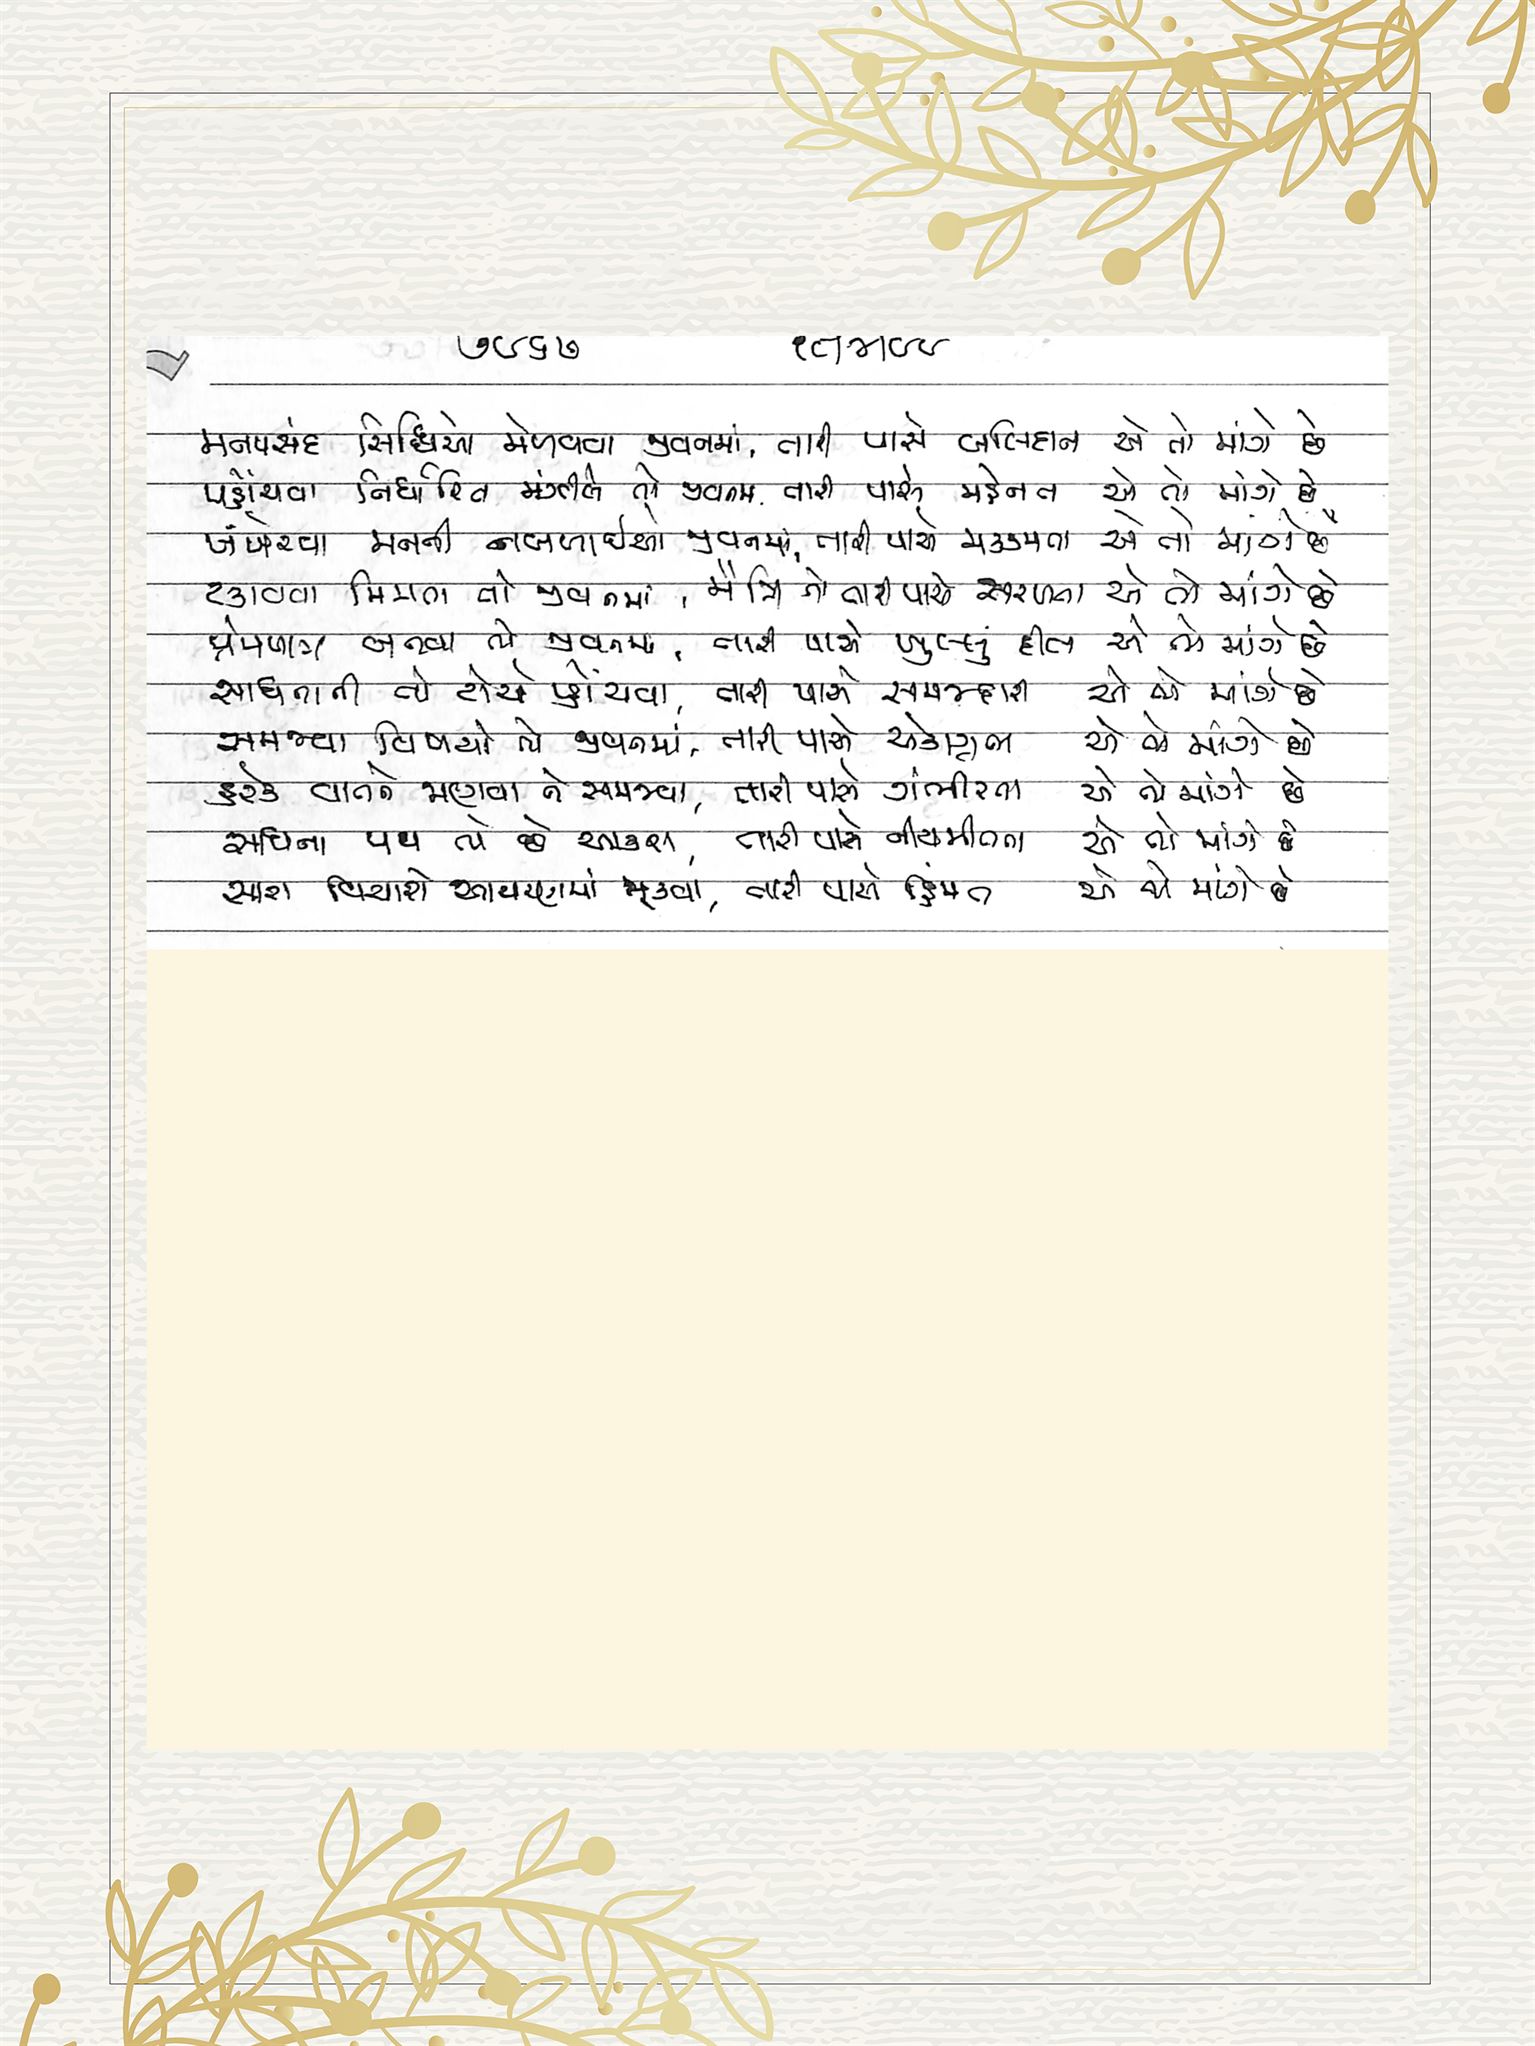 મનપસંદ સિધ્ધિઓ મેળવવા જીવનમાં, તારી પાસે બલિદાન એ તો માંગે છે
પહોંચવા નિર્ધારિત મંઝીલે તો જીવનમાં તારી પાસે મહેનત એ તો માંગે છે
ખંખેરવા મનની નબળાઈઓ જીવનમાં, તારી પાસે મક્કમતા એ તો માંગે છે
ટકાવવા મિત્રતા તો જીવનમાં, તારી પાસે સરળતા એ તો માંગે છે
પ્રેમપાત્ર બનવા તો જીવનમાં, તારી પાસે ખુલ્લું દીલ એ તો માંગે છે
સાધનાની તો ટોચે પ્હોંચવા, તારી પાસે સમજદારી એ તો માંગે છે
સમજવા વિષયો તો જીવનમાં, તારી પાસે એકાગ્રતા એ તો માંગે છે
હરેક વાતને જાણવા ને સમજવા, તારી પાસે ગંભીરતા એ તો માંગે છે
પથ તો છે આકરા, તારી પાસે નીયમીતતા એ તો માંગે છે
સારા વિચારો આચરણમાં મૂકવા, તારી પાસે હિંમત એ તો માંગે છે